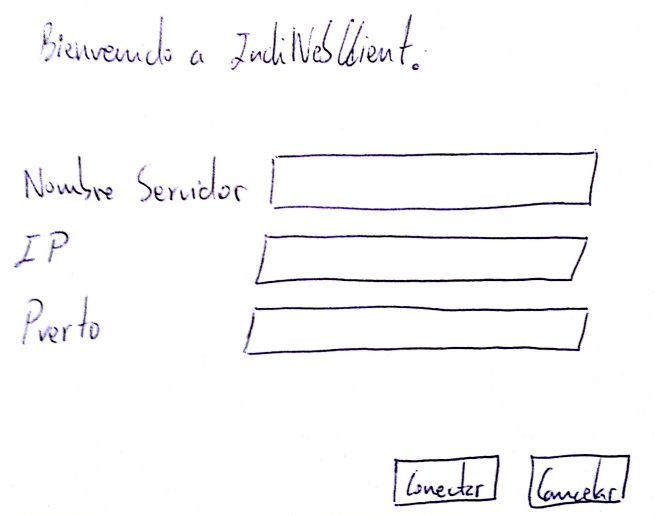 Bienvenido a IndiWebClient.
Nombre Servidor
IP
Puerto
Conectar Cancelar